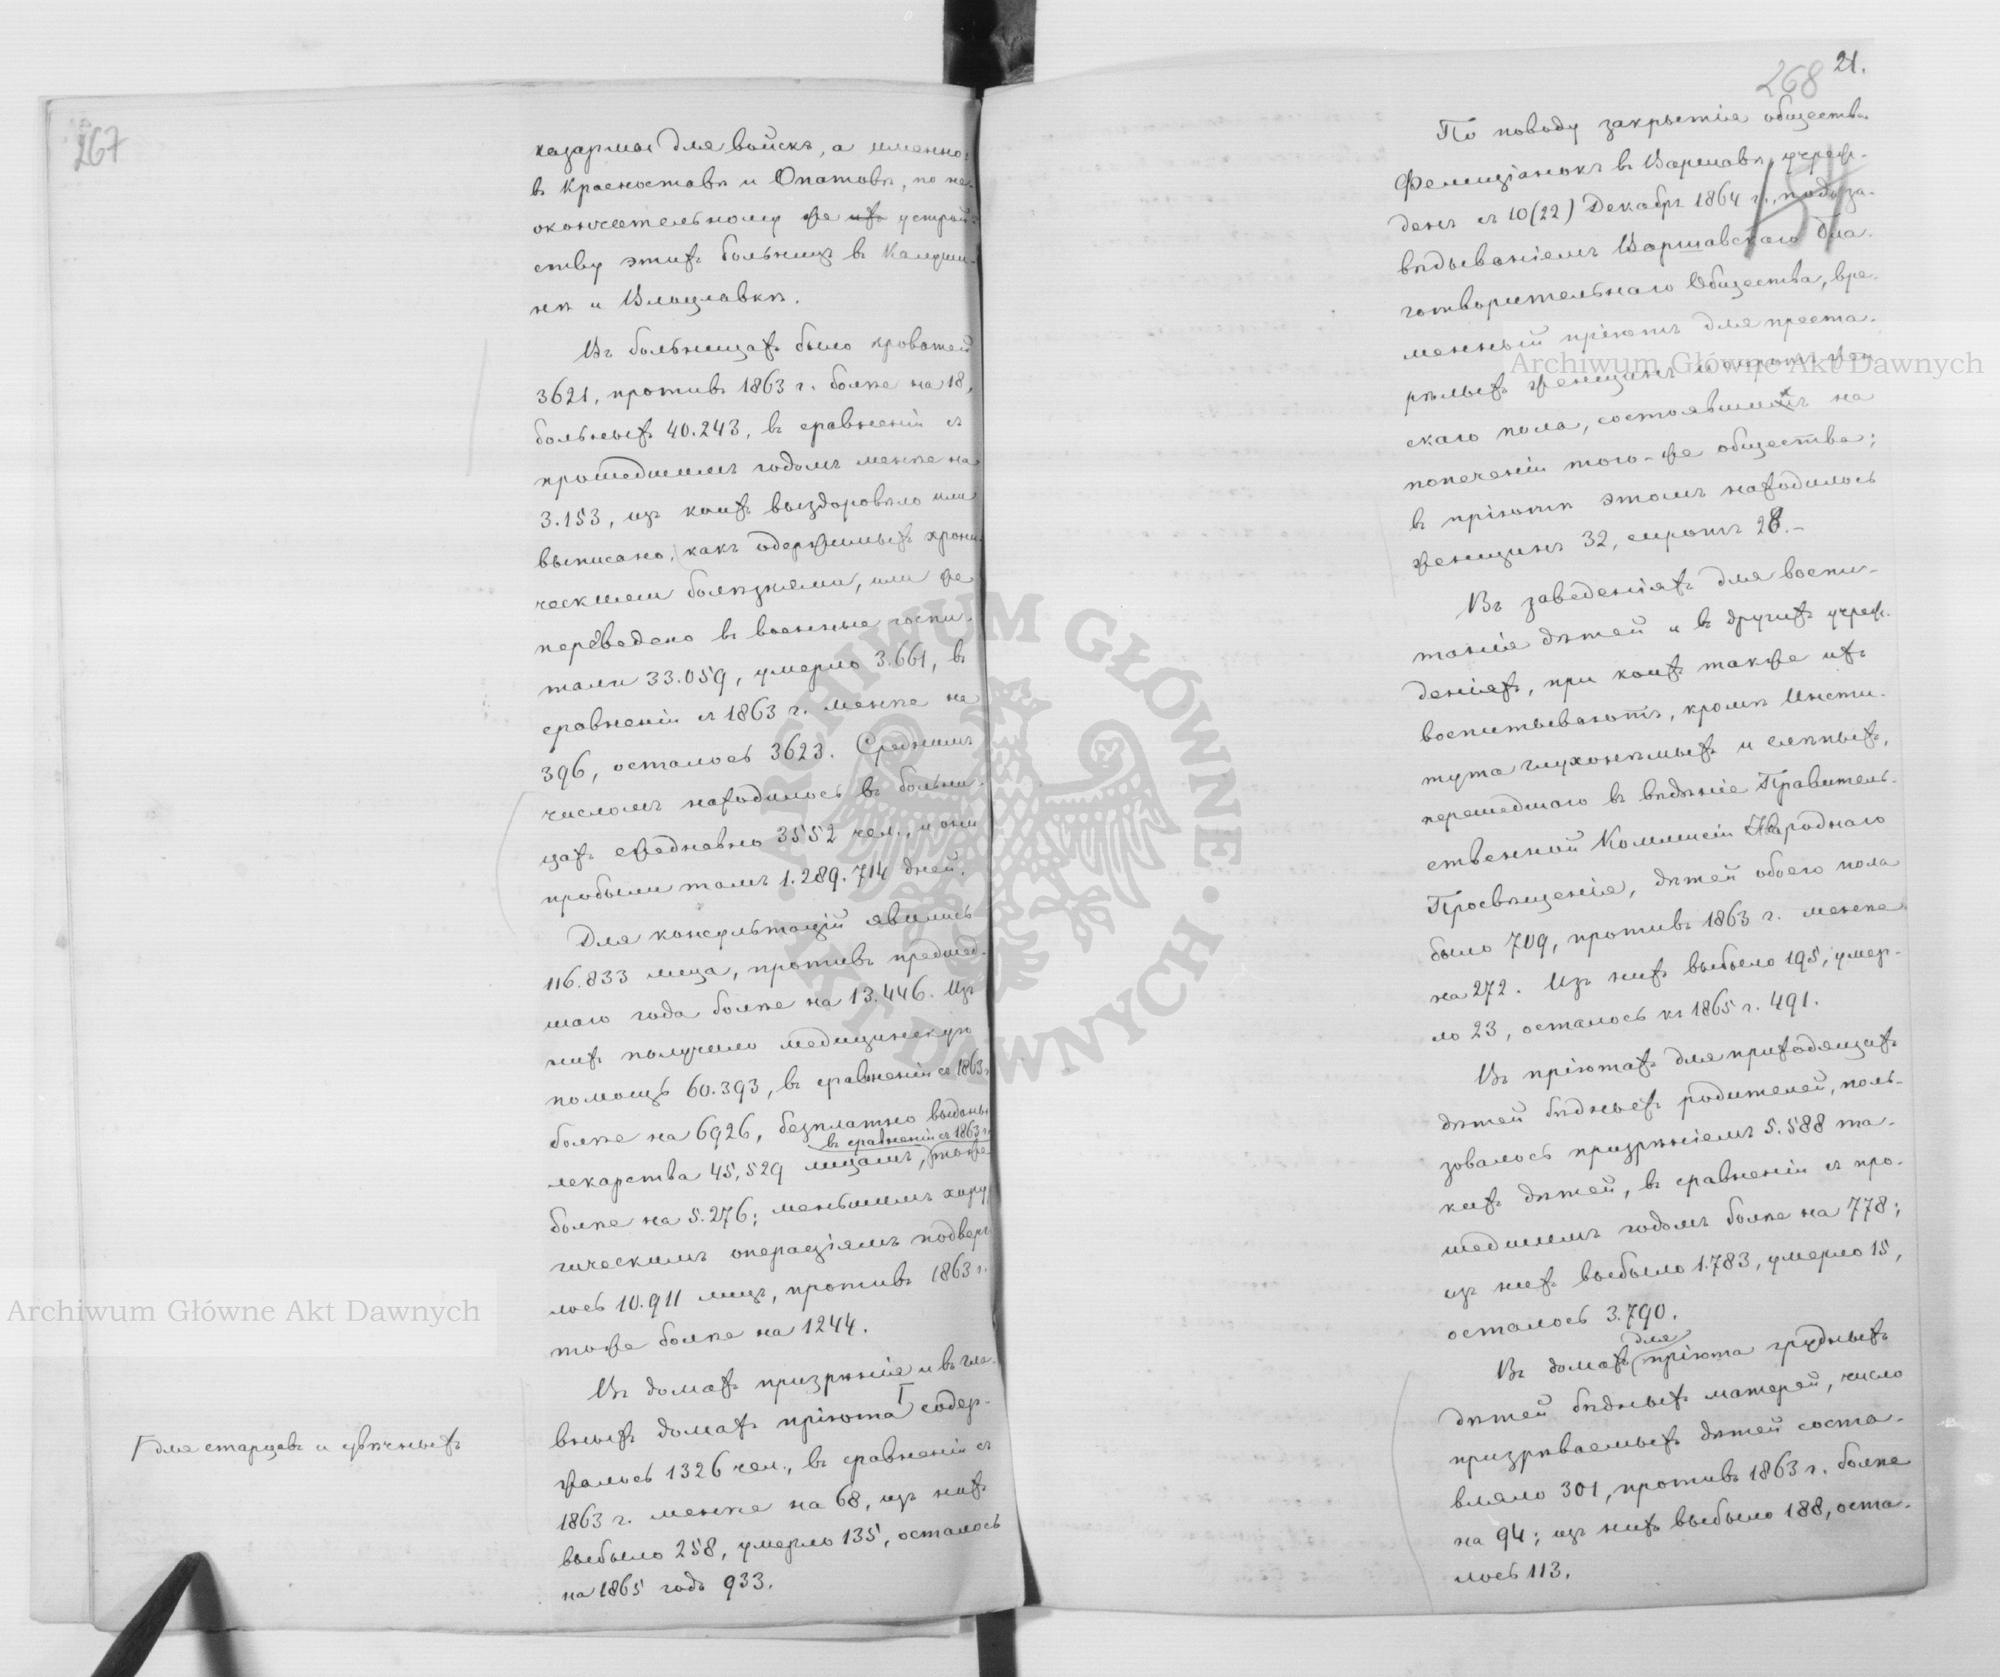 267
казармы для войскъ, а именно:
въ Красноставѣ и Опатовѣ, по не-
окончательному же ихъ устрой-
ству этихъ больницъ въ Калуши-
нѣ и Влоцлавкѣ.
Въ больницахъ было кроватей
3621, противъ 1863 г. болѣе на 18,
больныхъ 40.243, въ сравненіи съ
прошедшимъ годомъ менѣе на
3.153, изъ коихъ выздоровѣло или
выписано, какъ одержимыхъ хрони-
ческими болѣзнями, или же
переведено въ военные госпи-
тали 33.059, умерло 3.661, въ
сравненіи съ 1863 г. менѣе на
396, осталось 3623. Среднимъ
числомъ находилось въ больни-
цахъ ежедневно 3552 чел., и они
пробыли тамъ 1.289.714 дней.
Для консультацій явились
116.833 лица, противъ предшед-
шаго года болѣе на 13.446. Изъ
нихъ получило медицинскую
помощь 60.393, въ сравненіи съ 1863 г.
болѣе на 6926, безплатно выданы
въ сравненіи съ 1863 г.
лекарства 45,529 лицамъ, тоже
болѣе на 5.276; меньшимъ хирур
гическимъ операціямъ подверг
лось 10.911 лицъ, противъ 1863 г.
тоже болѣе на 1244.
Въ домахъ призрѣнія и въ гла-
вныхъ домахъ пріюта содер-
жалось 1326 чел., въ сравненіи съ
1863 г. менѣе на 68, изъ нихъ
выбыло 258, умерло 135, осталось
на 1865 годъ 933.
для старцевъ и увѣчныхъ
268 21.
По поводу закрытія общества
Фелиціанокъ въ Варшавѣ, учреж-
денъ съ 10(22) Декабря 1864 г., подъ за-
вѣдываніемъ Варшавскаго Бла-
готворительнаго Общества, вре-
менный пріютъ для преста-
рѣлыхъ женщинъ и сиротъ жен
скаго пола, состоявшихъ на
попеченіи того-же общества;
въ пріютѣ этомъ находилось
женщинъ 32, сиротъ 28.-
Въ заведеніяхъ для воспи-
танія дѣтей и въ другихъ учреж-
деніяхъ, при коихъ также ихъ
воспитываютъ, кромѣ Инсти-
тута глухонѣмыхъ и слѣпыхъ,
перешедшаго въ вѣдѣніе Правитель-
ственной Коммисіи Народнаго
Просвѣщенія, дѣтей обоего пола
было 709, противъ 1863 г. менѣе
на 272. Изъ нихъ выбыло 195, умер-
ло 23, осталось къ 1865 г. 491.
Въ пріютахъ для приходящихъ
дѣтей бѣдныхъ родителей, поль-
зовалось призрѣніемъ 5.588 та-
кихъ дѣтей, въ сравненіи съ про-
шедшимъ годомъ болѣе на 778;
изъ нихъ выбыло 1.783, умерло 15,
осталось 3.790.
для
Въ домахъ пріюта грудныхъ
дѣтей бѣдныхъ матерей, число
призрѣваемыхъ дѣтей соста-
вляло 301, противъ 1863 г. болѣе
на 94; изъ нихъ выбыло 188, оста-
лось 113.
Archiwum Główne Akt Dawnych
Archiwum Główne Akt Dawnych
ARCHIWUM GŁÓWNE · AKT DAWNYCH ·